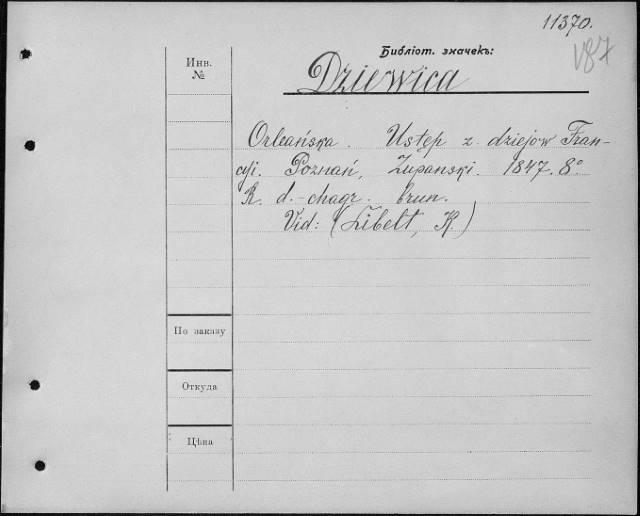 11370.
187
Библіот. значекъ:
Инв.
№
Dziewica
Orleańska. Ustęp z dziejow Fran-
cji. Poznań, Żupanski. 1847. 8°
R. d.-chagr. brun.
Vid: (Libelt, K.)
По заказу
Откуда
Цѣна